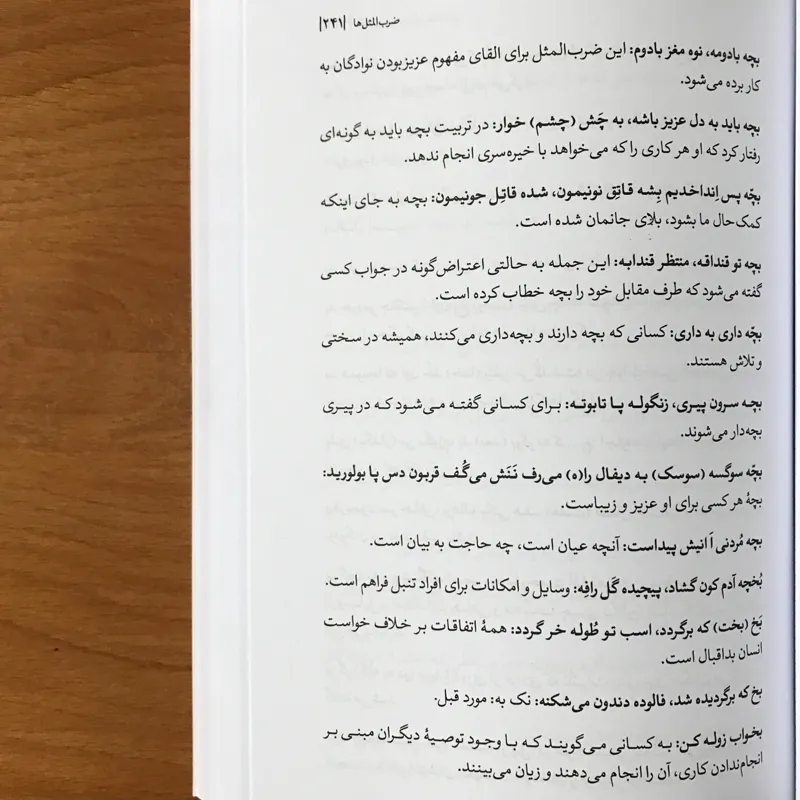 ضرب‌المثل‌ها |۲۴۱|
بچه بادومه، نوه مغز بادوم: این ضرب‌المثل برای القای مفهوم عزیزبودن نوادگان به
کار برده می‌شود.
بچه باید به دل عزیز باشه، به چَش (چشم) خوار: در تربیت بچه باید به گونه‌ای
رفتار کرد که او هر کاری را که می‌خواهد با خیره‌سری انجام ندهد.
بچّه پس اِنداخدیم بِشه قـاتِق نونیمون، شده قاتِل جونیمون: بچـه به جـای اینکه
کمک‌حال ما بشود، بلای جانمان شده است.
بچه تو قنداقـه، منتظر قندابـه: ایـن جملـه بـه حالتـی اعتراض‌گونه در جواب کسی
گفته می‌شود که طرف مقابل خود را بچه خطاب کرده است.
بچّه داری به داری: کسانی که بچه دارند و بچه‌داری می‌کنند، همیشه در سختی
و تلاش هستند.
بچـه سـرون پیـری، زنگولـه پـا تابوتـه: بـرای کسـانی گفتـه مـی‌شـود کـه در پیـری
بچه‌دار می‌شوند.
بچّه سوگسه (سوسک) به دیفال را(ه) می‌رف نَنَش می‌گُف قربون دس پا بولورید:
بچهٔ هر کسی برای او عزیز و زیباست.
بچه مُردنی اَ اَنیش پیداست: آنچه عیان است، چه حاجت به بیان است.
بُخچه آدم کون گشاد، پیچیده گَل رافِه: وسایل و امکانات برای افراد تنبل فراهم است.
بَخ (بخت) که برگردد، اسب تـو طُولـه خـر گـردد: همـهٔ اتفاقـات بـر خـلاف خواسـت
انسان بداقبال است.
بخ که برگردیده شد، فالوده دندون می‌شکنه: نک به: مورد قبل.
بخواب زولـه کـن: بـه کسـانی مـی‌گوینـد کـه بـا وجـود توصیـهٔ دیگـران مبنـی بـر
انجام‌ندادن کاری، آن را انجام می‌دهند و زیان می‌بینند.